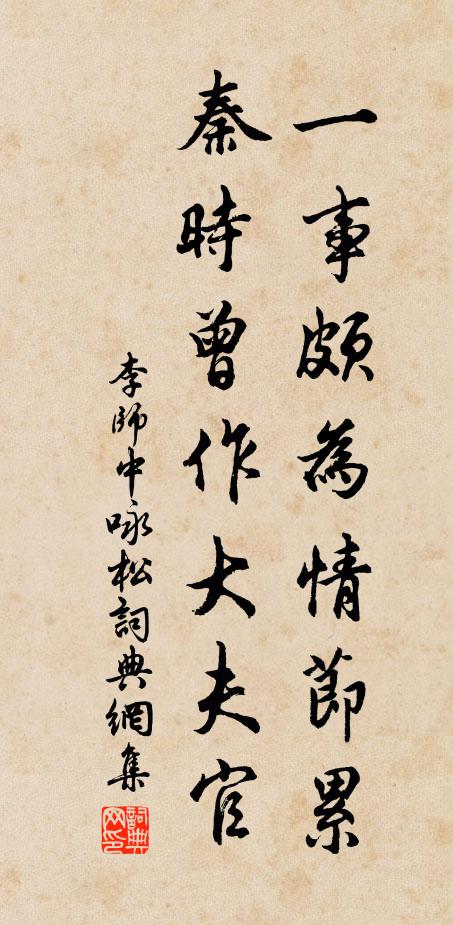 一事頗為情節累
秦時曾作大夫官
李師中咏松詞典網集
詞典網印